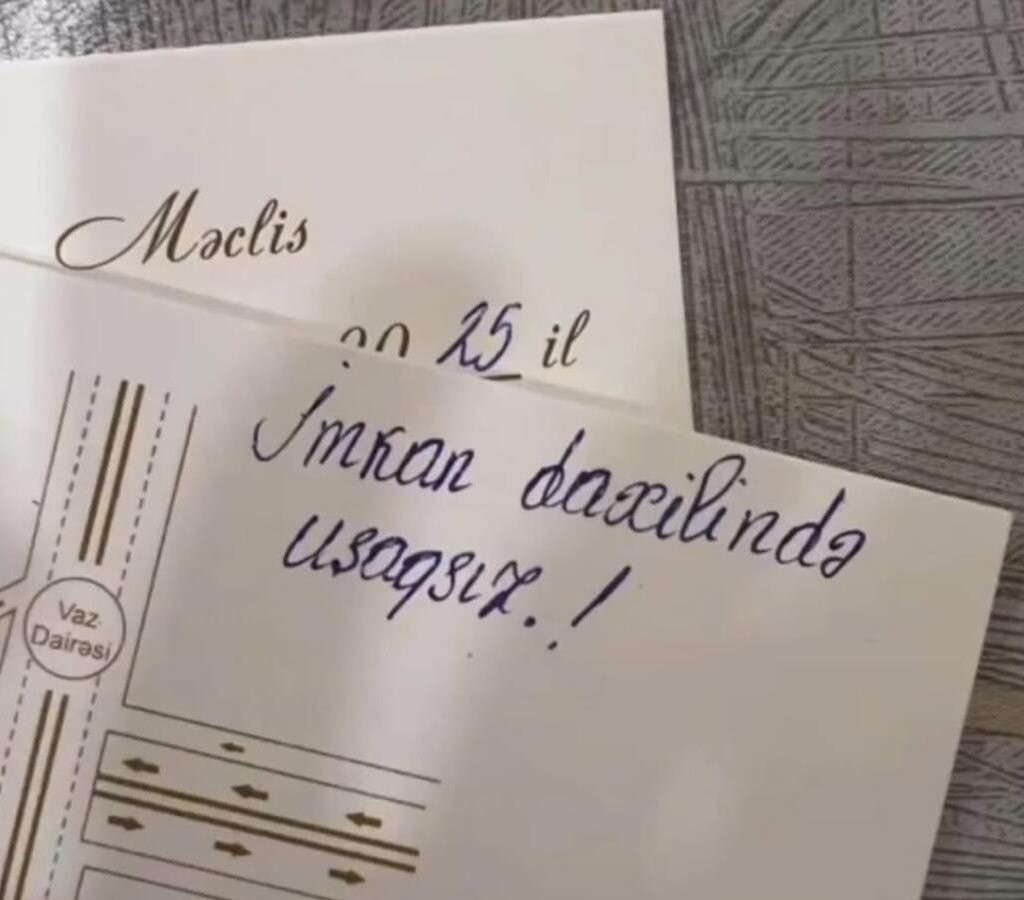 Məclis
20 25 il
İmkan daxilində
uşaqsız.!
Vaz
Dairəsi